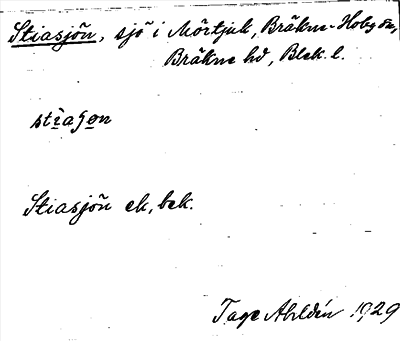 Stiasjön, sjö i Mörtjuk, Bräkne-Hoby sn,
Bräkne hd, Blek. l.
Stiasjön ek, bek.
Tage Ahldén 1929